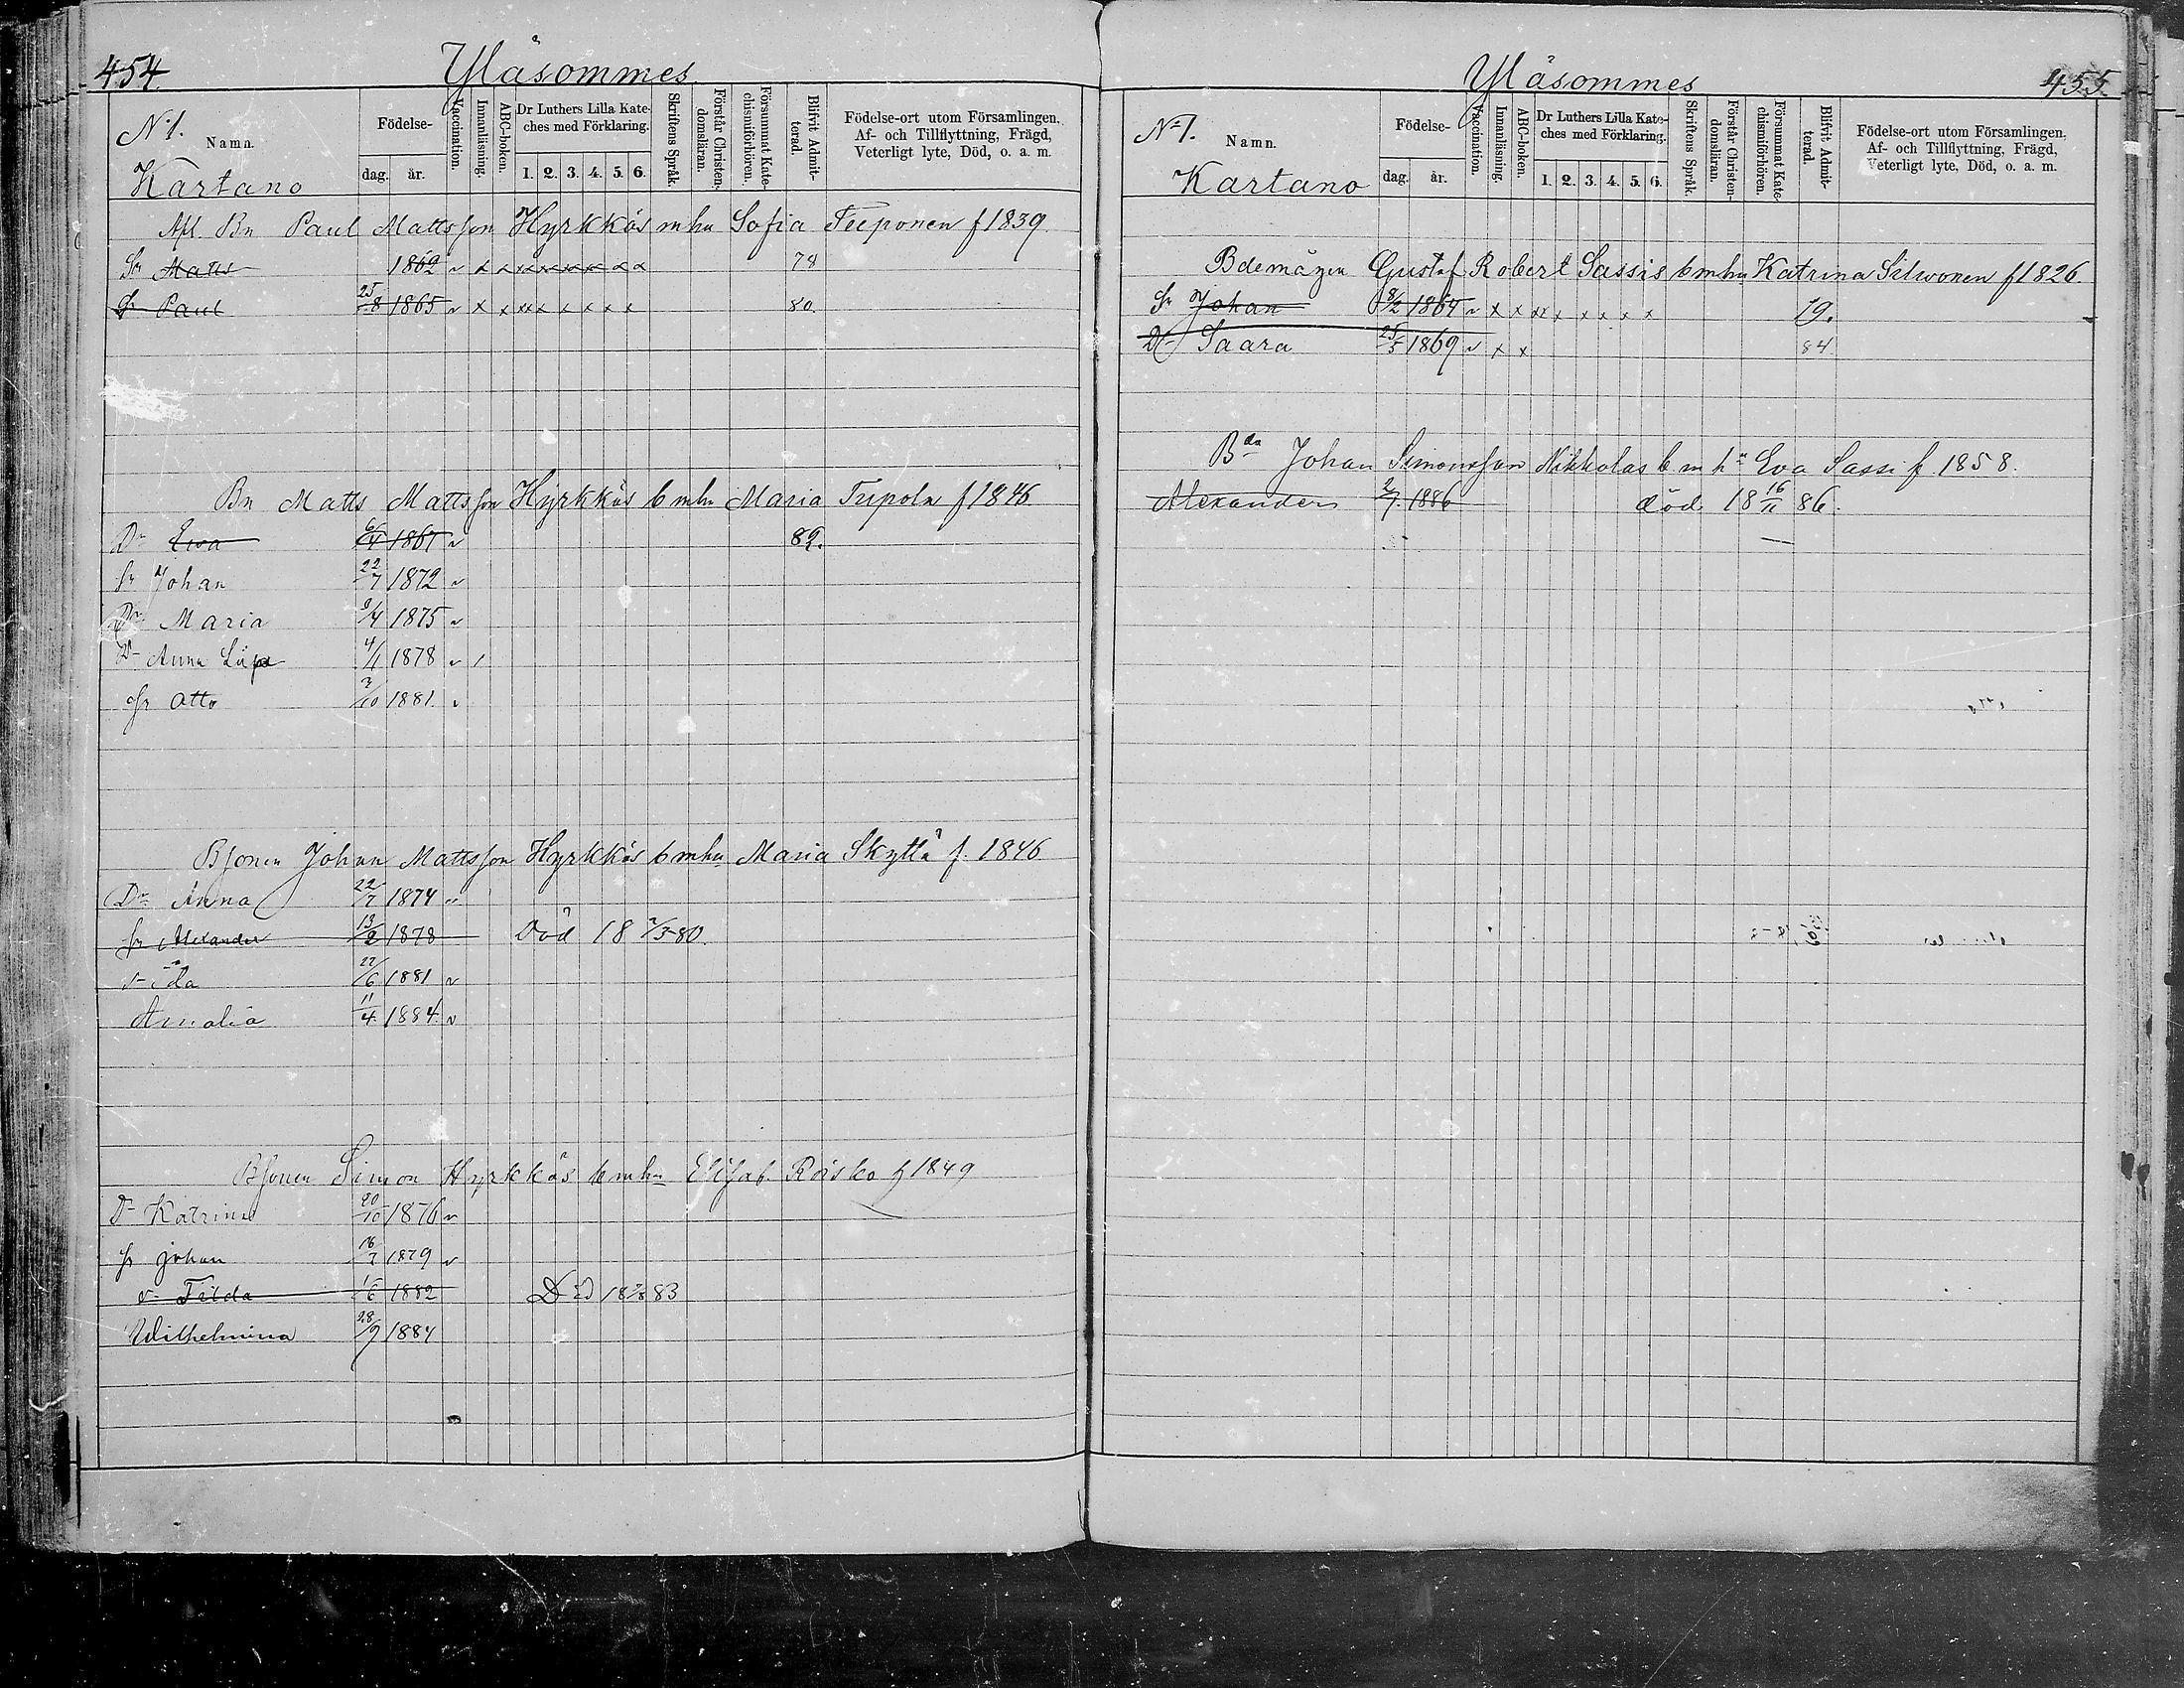 454.
Yläsommes
N:1.
Namn.
Kartano
Födelse-
dag. år.
Vaccination.
Innanläsning.
ABC-boken.
Dr Luthers Lilla Kate-
ches med Förklaring.
1. 2. 3. 4. 5. 6.
Skriftens Språk.
Förstår Christen-
domsläran.
Försummat Kate-
chismiförhören.
Blifvit Admit-
terad.
Födelse-ort utom Församlingen.
Af- och Tillflyttning, Frägd,
Veterligt lyte, Död, o. a. m.
Bn Paul Mattsson Hyrkkäs mhu Sofia Teeponen f 1839
Sn Matts 1862 v x x x x x x x x x x 78
Sn Paul 25/8 1865 v x x x x x x x x x 80.
Bn Matts Mattsson Hyrkkäs b mhu Maria f 1846
Dr Ewa 6/4 1867 v 82.
Sn Johan 22/7 1872 v
Dr Maria 9/4 1875 v
Dr Anna 4/1 1878 v
Sn Otto 3/10 1881 v
Bsonen Johan Mattsson Hyrkkäs b mhu Maria Skyttä f. 1846
Dr Anna 22/7 1874 v
Sn Alexander 13/2 1878 Död 18 2/3 80.
Dr Ida 22/6 1881 v
Amalia 11/4 1884 v
Bsonen Simon Hyrkkäs b mhu Elisab. Roisko f 1849
Dr Katrina 20/10 1876 v
Sn Johan 16/7 1879 v
Dr Tilda 1/6 1882 Död 18 83
Wilhelmina 28/9 1884
Yläsommes
455.
N:1.
Namn.
Kartano
Födelse-
dag. år.
Vaccination.
Innanläsning.
ABC-boken.
Dr Luthers Lilla Kate-
ches med Förklaring.
1. 2. 3. 4. 5. 6.
Skriftens Språk.
Förstår Christen-
domsläran.
Försummat Kate-
chismiförhören.
Blifvit Admit-
terad.
Födelse-ort utom Församlingen.
Af- och Tillflyttning, Frägd,
Veterligt lyte, Död, o. a. m.
Bdemågen Gustaf Robert Sassis b mhu Katrina Silwonen f 1826.
Sn Johan 8/2 1864 v x x x x x x x x x 79.
Dr Saara 25/5 1869 v x x 84.
Johan Simonsson Nikkolas b m hu Eva Sassi f. 1858.
Alexander 2/7 1886 död 18 16/11 86.